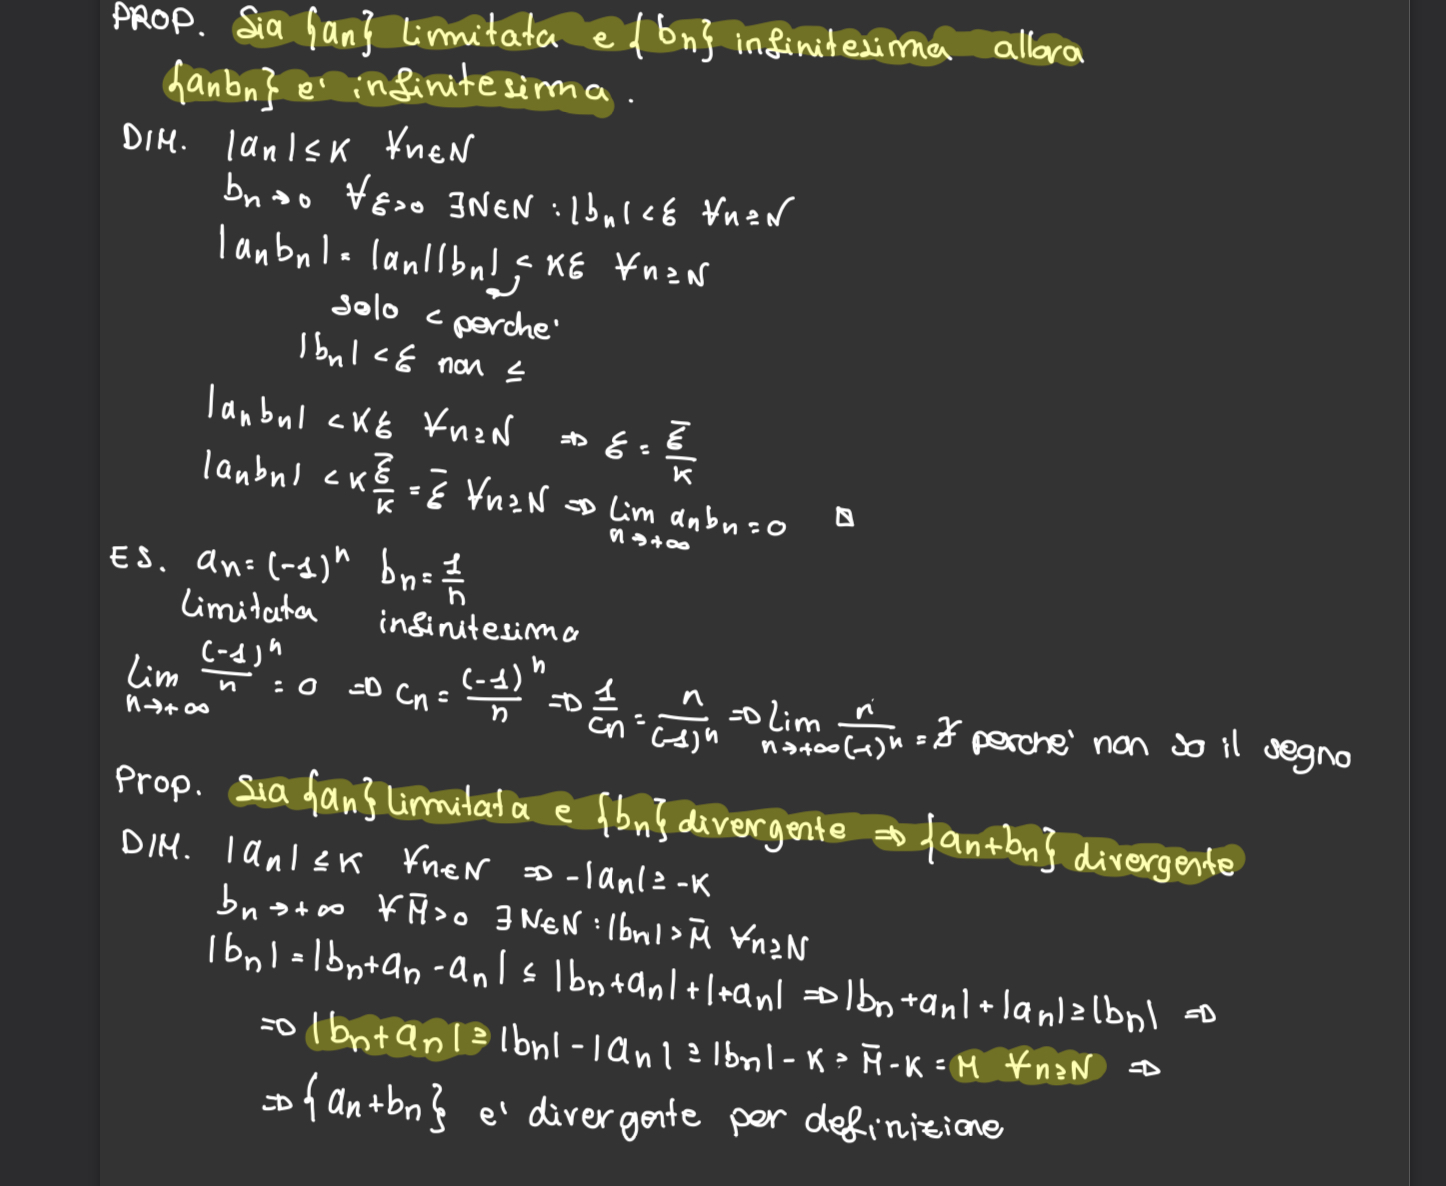 PROP. Sia {an} limitata e {bn} infinitesima allora
{anbn} e' infinitesima.
DIM. |an| ≤ K ∀n∈N
bn → 0 ∀ε>0 ∃N∈N : |bn| < ε ∀n≥N
|anbn| = |an||bn| < Kε ∀n≥N
solo < perche'
|bn| < ε non ≤
|anbn| < Kε ∀n≥N ⇒ ε = ε̄/K
|anbn| < K ε̄/K = ε̄ ∀n≥N ⇒ lim n→+∞ anbn = 0 □
ES. an = (-1)^n bn = 1/n
limitata infinitesima
lim n→+∞ (-1)^n/n = 0 ⇒ cn = (-1)^n/n ⇒ 1/cn = n/(-1)^n ⇒ lim n→+∞ n/(-1)^n = ∄ perche' non so il segno
Prop. Sia {an} limitata e {bn} divergente ⇒ {an+bn} divergente
DIM. |an| ≤ K ∀n∈N ⇒ -|an| ≥ -K
bn → +∞ ∀M̄>0 ∃N∈N : |bn| > M̄ ∀n≥N
|bn| = |bn+an-an| ≤ |bn+an| + |+an| ⇒ |bn+an| + |an| ≥ |bn| ⇒
⇒ |bn+an| ≥ |bn| - |an| ≥ |bn| - K > M̄ - K = M ∀n≥N ⇒
⇒ {an+bn} e' divergente per definizione